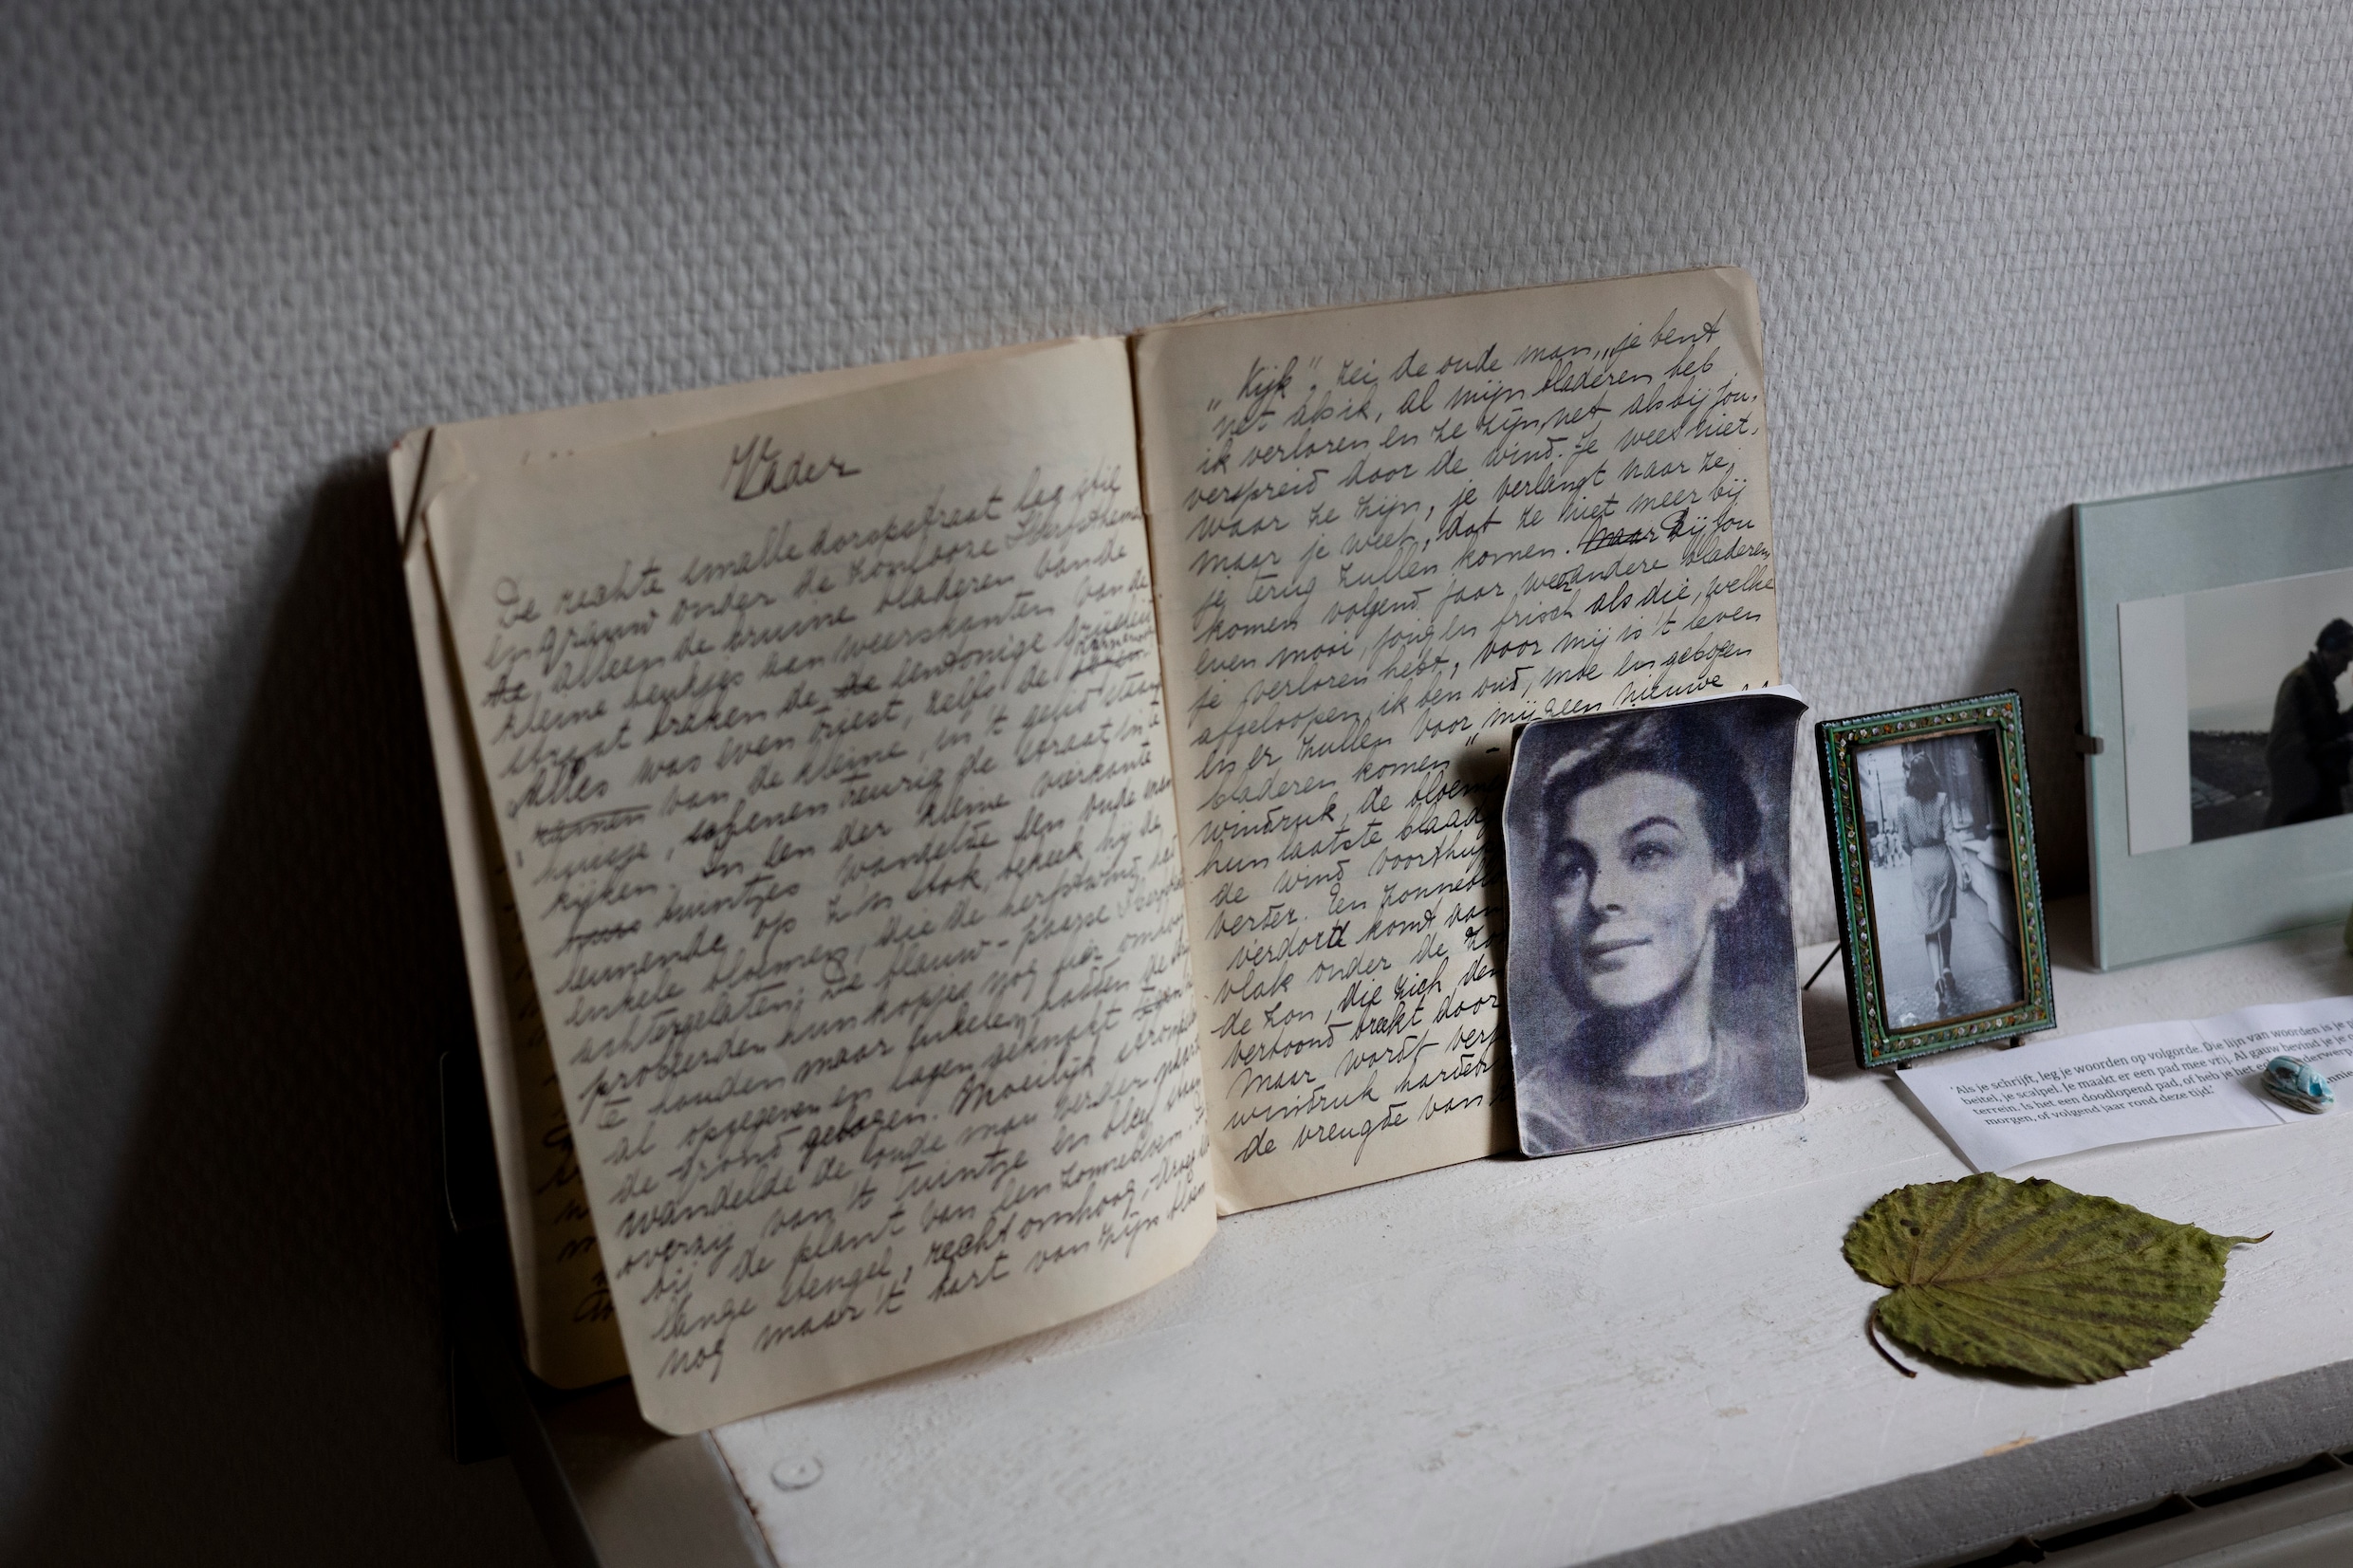 Vader
De rechte smalle dorpsstraat lag stil
en grauw onder de zonloose Herfsthemel
te, alleen de bruine bladeren van de
kleine beukjes aan weerskanten van de
straat braken de de eentonige
Alles was even triest, zelfs de
ramen van de kleine, in 't gelid staande
huisje, schenen treurig de straat in te
kijken. In een der kleine vierkante
huis tuintjes wandelde een oude man
leunende op z'n stok, bekeek hij de
enkele bloemen, die de herfstwind had
achtergelaten; de blauw-paarse
probeerden hun kopjes nog fier omhoog
te houden maar enkelen hadden de
al opgegeven en lagen geknakt
de grond gebogen. Moeilijk
wandelde de oude man verder naar
overzij van 't tuintje en bleef
bij de plant van een zonnebloem.
lange stengel, recht omhoog, droeg
nog maar 't hart van zijn bloem
„Kijk", zei de oude man, „je bent
net als ik, al mijn bladeren heb
ik verloren en ze zijn, net als bij jou,
verspreid door de wind. Je weet niet,
waar ze zijn, je verlangt naar ze,
maar je weet, dat ze niet meer bij
je terug zullen komen. Maar Bij jou
komen volgend jaar weer andere bladeren
even mooi, jong en frisch als die, welke
je verloren hebt, voor mij is 't leven
afgeloopen, ik ben oud, moe en gebogen
en er zullen voor mij geen nieuwe
bladeren komen"
windruk, de bloem
hun laatste blaad
de wind voort
verder. Een zonnebl
verdord komt van
vlak onder de
de zon, die zich
vertoond brakt door
Maar wordt
windruk harder
de vreugde van
'Als je schrijft, leg je woorden op volgorde. Die lijn van woorden is je
beitel, je scalpel. Je maakt er een pad mee vrij. Al gauw bevind je je
terrein. Is het een doodlopend pad, of heb je het onderwerp
morgen, of volgend jaar rond deze tijd.'